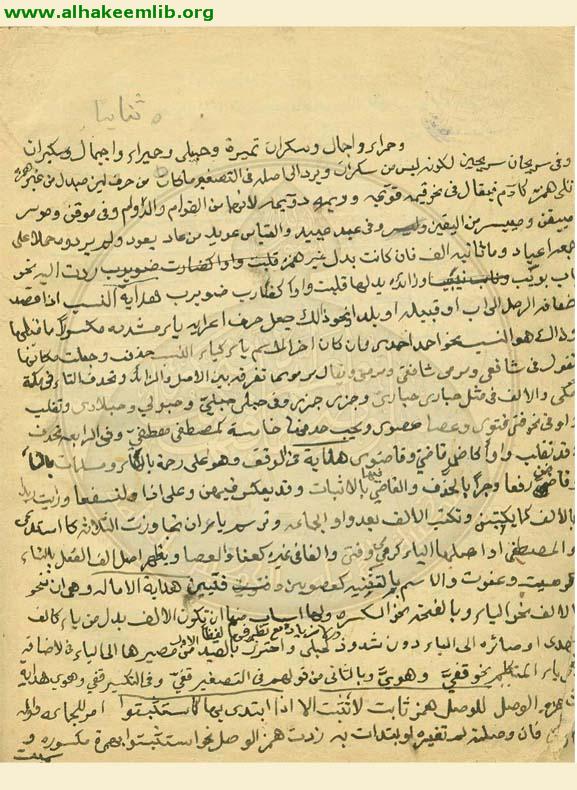 www.alhakeemlib.org
ثنايا
وحمراء واجمال وسكران تميرة وحبيلى وحميراء واجيمال وسكيران
وفى سرحان سريحين لكون ليس من سكران ويرد الى اصله فى التصغير ما كان من حرف لين مبدل من غير همزة
تلى همزة كادم فيقال فى نحو قيمه قويمه وديمه دويمه لانهما من القوام والدوام وفى موقن وموسر
مييقن ومييسر من اليقين واليسر وفى عيد عييد والقياس عويد من عاد يعود ولم يردوه حملا على
جمعه اعياد وما ثانيه الف فان كانت بدل غير همزة قلبت واوا كضارب ضويرب ردت اليه نحو
باب بويب وناب نييب او زائدة بدلها قلبت واوا كضارب ضويرب هداية النسب اذا قصد
اضافة الرجل الى اب او قبيلة او بلد او نحو ذلك جعل حرف اعرابه ياء مشددة مكسورا ما قبلها
وذلك هو النسب نحو احمد احمدى فان كان اخر الاسم ياء كياء النسب حذف وجعلت مكانها
تقول فى شافعى ومرمى شافعى ومرمى ويقال مرموى تفرقة بين الاصل والزائد وتحذف التاء فى مكة
مكى والالف فى مثل حبارى حبارى وجمزى جمزى وفى حبلى حبلى وحبلوى وحبلاوى وتقلب
واوا فى نحو فتى فتوى وعصا عصوى ويجب حذفها خامسة كمصطفى مصطفى وفى الرابعة تحذف
وقد تقلب واوا كقاض قاضى وقاضوى هداية فى الوقف وهو على رحمة بالهاء ومسلمات بالتاء
وقاض رفعا وجرا بالحذف والقاضى فيهما بالاثبات وقد يعكس فيهن وعلى اذا ولنسفعا ورايت زيدا
بالالف كما يكتبن وتكتب الالف بعد واو الجماعة وترسم ياء ان تجاوزت الثلاثة كاستدعى
والمصطفى او اصلها الياء كرمى وفتى والفا فى غيره كعفا والعصا ويظهر اصل الف الفعل بالتاء
كرميت وعفوت والاسم بالتثنية كعصوين وفتيين هداية الامالة وهى ان ننحو
الالف نحو الياء وبالفتحة نحو الكسرة ولها اسباب منها ان تكون الالف بدل من ياء كالف
هدى او صائرة الى الياء دون شذوذ كحبلى واحترز بالقيد الاول من مصيرها الى الياء فى الاضافة
الى ياء المتكلم نحو قفى وهوى وبالثانى من قولهم فى التصغير قفى وفى التكسير قفى وهوى هداية
همزة الوصل للوصل همز ثابت لا تثبت الا اذا ابتدى بها كاستثبتوا امر للجماعة
فان وصلت لم تغيره لو ابتدات به زدت همز الوصل نحو استثبتوا بهمزة مكسورة و
سميت